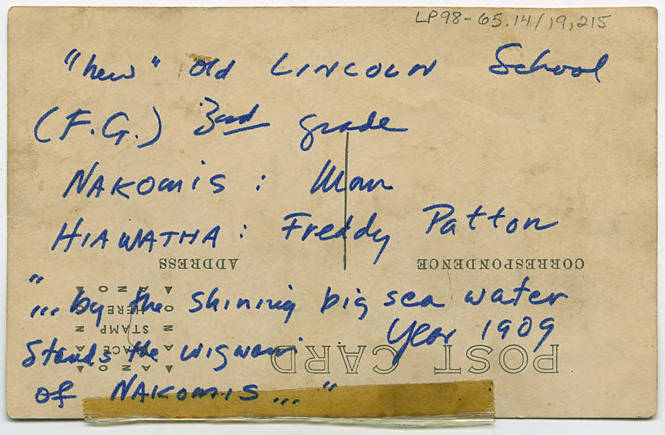 LP98-65.14/19,215
"new" old LINCOLN School
(F.G.) 3rd grade
NAKOMIS: Mom
HIAWATHA: Freddy Patton
ADDRESS CORRESPONDENCE
"... by the shining big sea water
Stands the wigwam Year 1909
of NAKOMIS..."
POST CARD
AZO
PLACE
STAMP
HERE
AZO